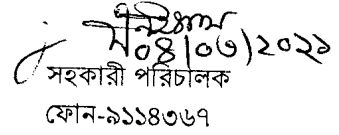 ০৪/০৩/২০২১
সহকারী পরিচালক
ফোন-৯১১৪৩৬৭